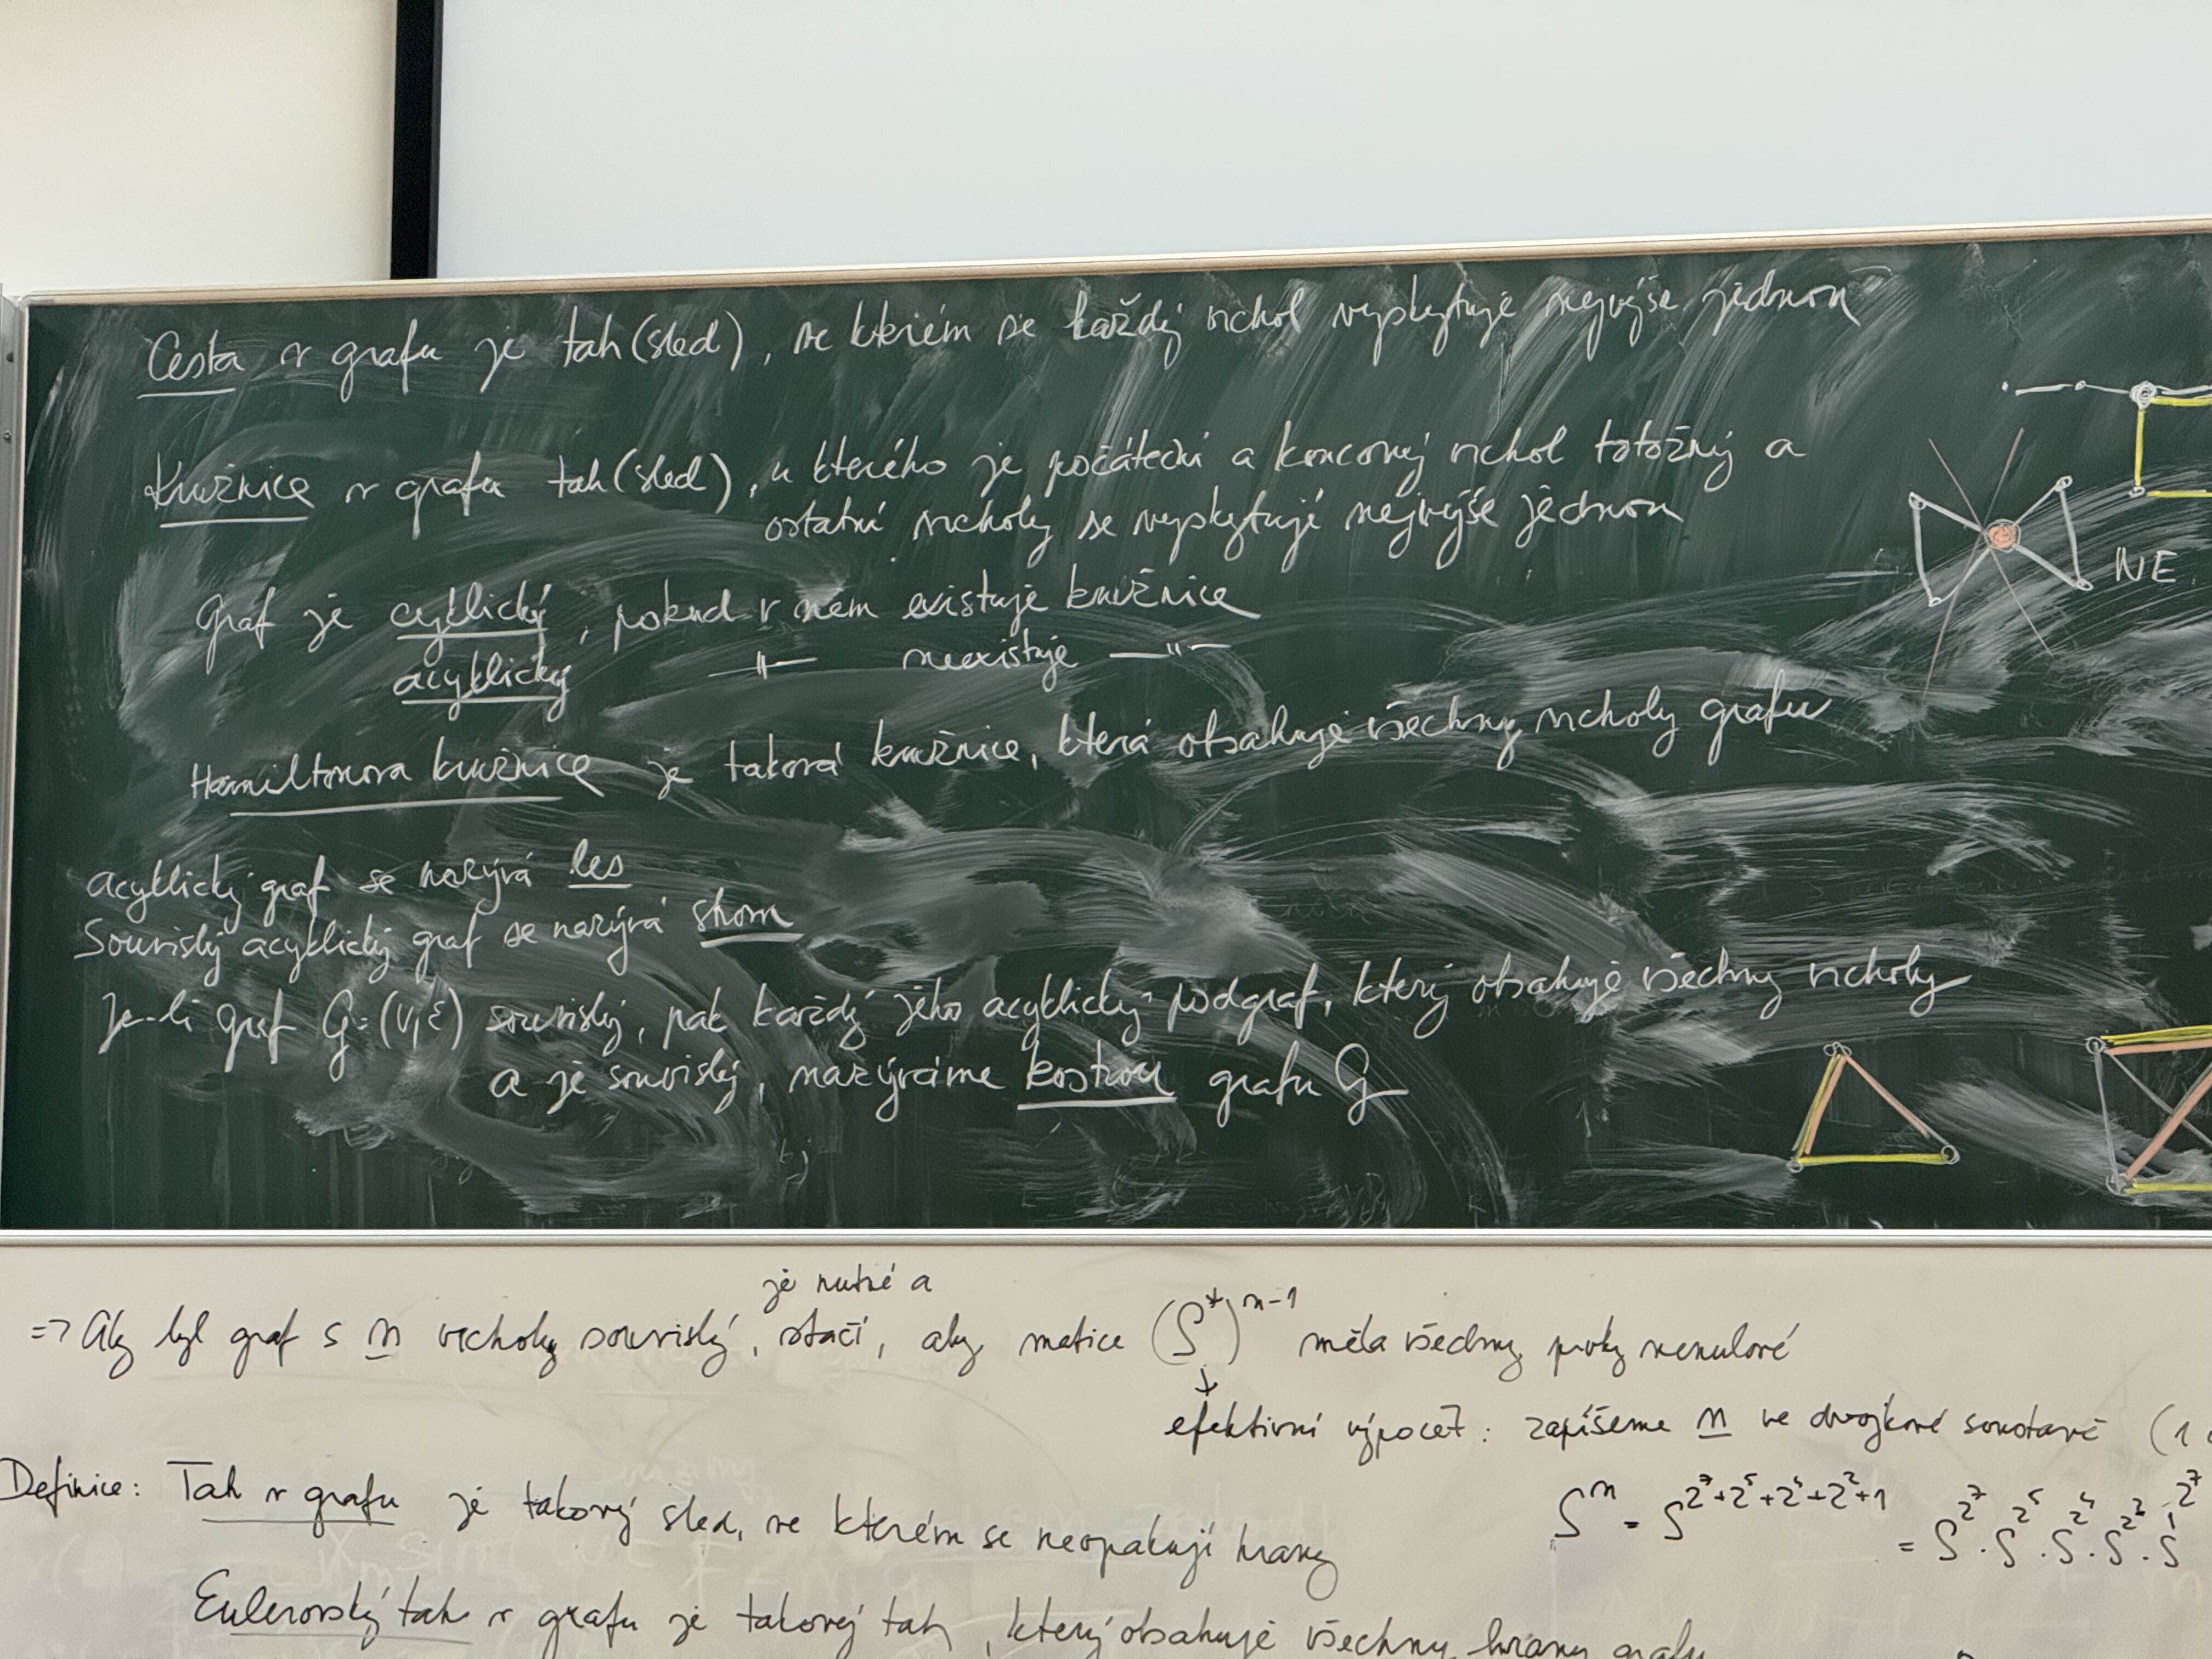 Cesta v grafu je tah (sled), ve kterém se každý vrchol vyskytuje nejvýše jednou
Kružnice v grafu tah (sled), u kterého je počáteční a koncový vrchol totožný a
ostatní vrcholy se vyskytují nejvýše jednou
NE
Graf je cyklický, pokud v něm existuje kružnice
acyklický —"— neexistuje —"—
Hamiltonova kružnice je taková kružnice, která obsahuje všechny vrcholy grafu
acyklický graf se nazývá les
Souvislý acyklický graf se nazývá strom
Je-li graf G=(V,E) souvislý, pak každý jeho acyklický podgraf, který obsahuje všechny vrcholy
a je souvislý, nazýváme kostrou grafu G
je nutné a
=> Aby byl graf s n vrcholy souvislý, stačí, aby matice (S*)^{n-1} měla všechny prvky nenulové
↓
efektivní výpočet: zapíšeme n ve dvojkové soustavě (1
Definice: Tah v grafu je takový sled, ve kterém se neopakují hrany
Eulerovský tah v grafu je takový tah, který obsahuje všechny hrany grafu